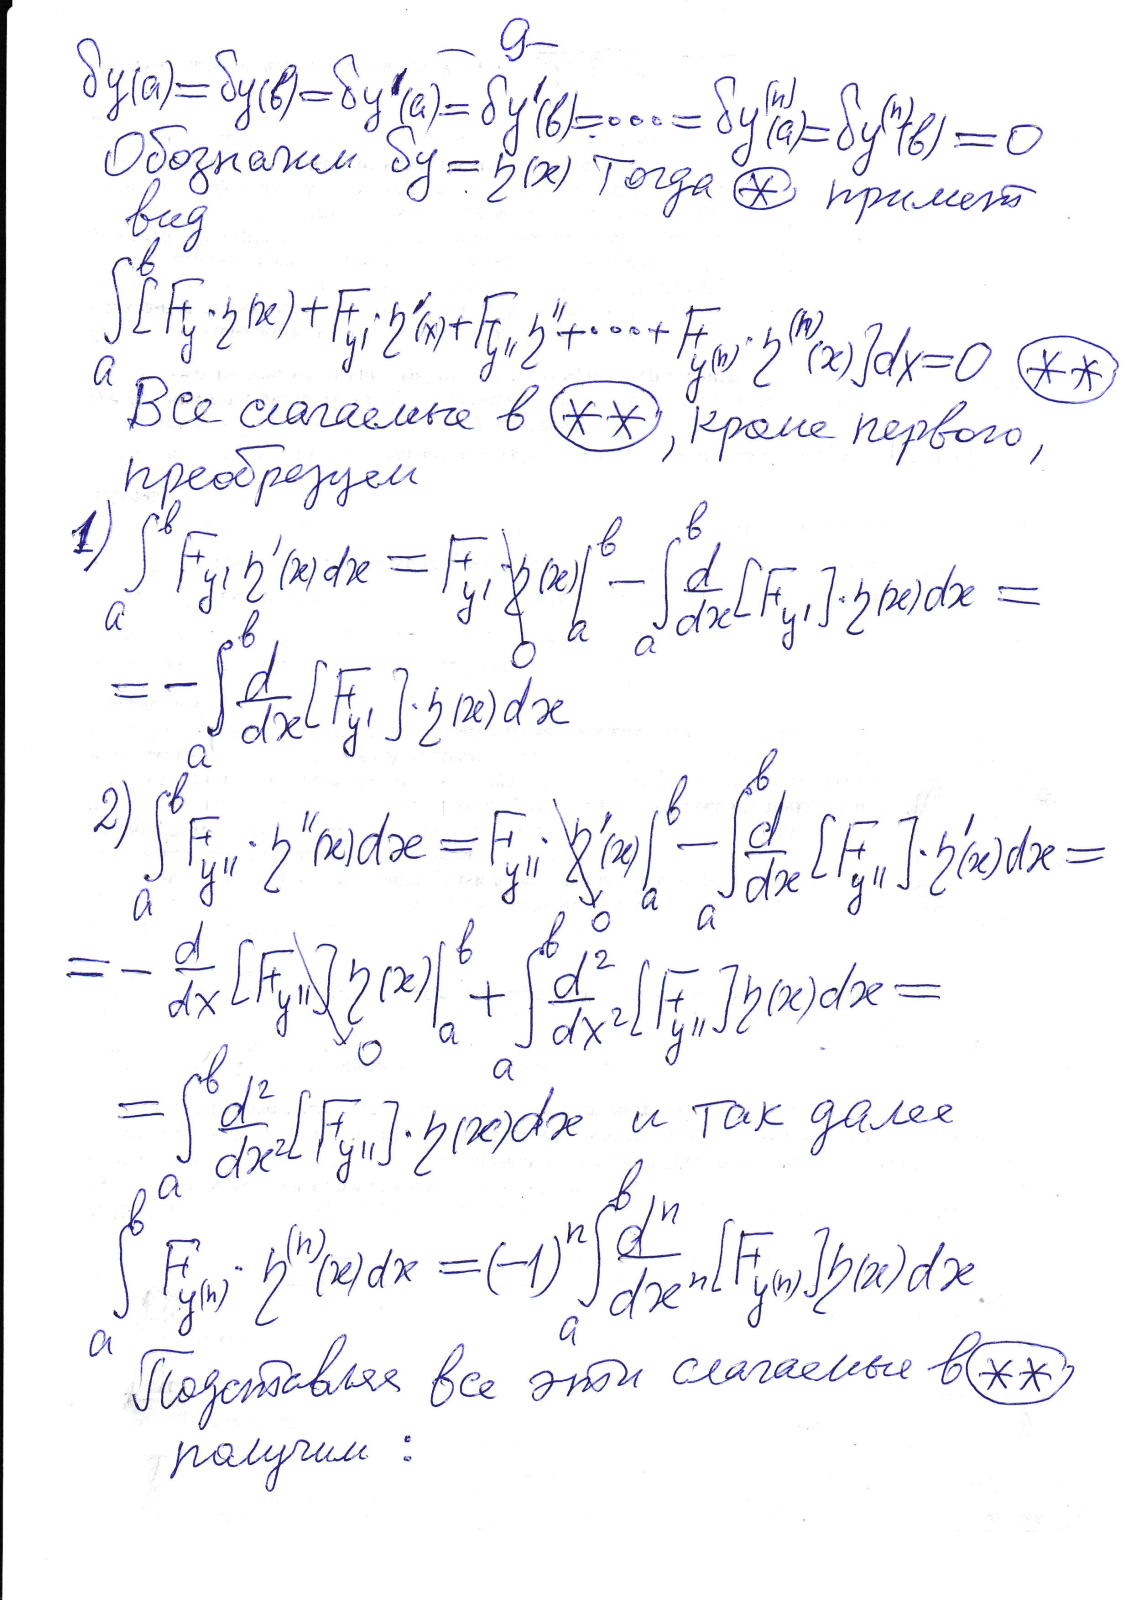 – 9 –
δy(a) = δy(в) = δy'(a) = δy'(в) = ··· = δy⁽ⁿ⁾(a) = δy⁽ⁿ⁾(в) = 0
Обозначим δy = η(x) Тогда (*) примет
вид
∫ₐᵇ [F_y · η(x) + F_y' · η'(x) + F_y'' η'' + ··· + F_y⁽ⁿ⁾ · η⁽ⁿ⁾(x)] dx = 0 (**)
Все слагаемые в (**), кроме первого,
преобразуем
1) ∫ₐᵇ F_y' η'(x) dx = F_y' · η(x) |ₐᵇ → 0 − ∫ₐᵇ d/dx [F_y'] · η(x) dx =
= − ∫ₐᵇ d/dx [F_y'] · η(x) dx
2) ∫ₐᵇ F_y'' · η''(x) dx = F_y'' · η'(x) |ₐᵇ → 0 − ∫ₐᵇ d/dx [F_y''] · η'(x) dx =
= − d/dx [F_y''] η(x) |ₐᵇ → 0 + ∫ₐᵇ d²/dx² [F_y''] η(x) dx =
= ∫ₐᵇ d²/dx² [F_y''] · η(x) dx и так далее
∫ₐᵇ F_y⁽ⁿ⁾ · η⁽ⁿ⁾(x) dx = (−1)ⁿ ∫ₐᵇ dⁿ/dxⁿ [F_y⁽ⁿ⁾] η(x) dx
Подставляя все эти слагаемые в (**)
получим :